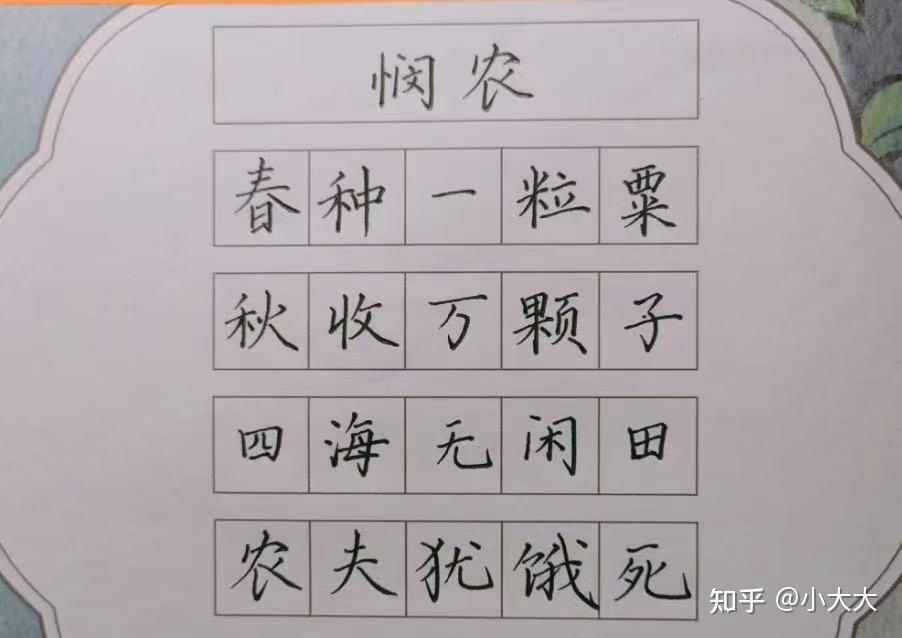 悯农
春种一粒粟
秋收万颗子
四海无闲田
农夫犹饿死
知乎 @小大大